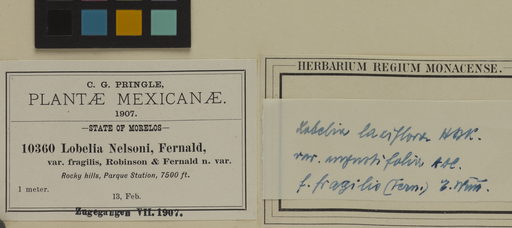 C. G. PRINGLE,
PLANTÆ MEXICANÆ.
1907.
STATE OF MORELOS
10360 Lobelia Nelsoni, Fernald,
var. fragilis, Robinson & Fernald n. var.
Rocky hills, Parque Station, 7500 ft.
1 meter.
13, Feb.
Zugegangen VII. 1907.
HERBARIUM REGIUM MONACENSE.
Lobelia laxiflora HBK.
var. angustifolia ADC.
f. fragilis (Fern.)